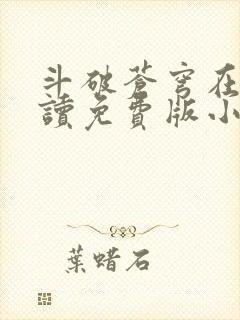 斗破蒼穹在
讀免費版小
葉蜡石